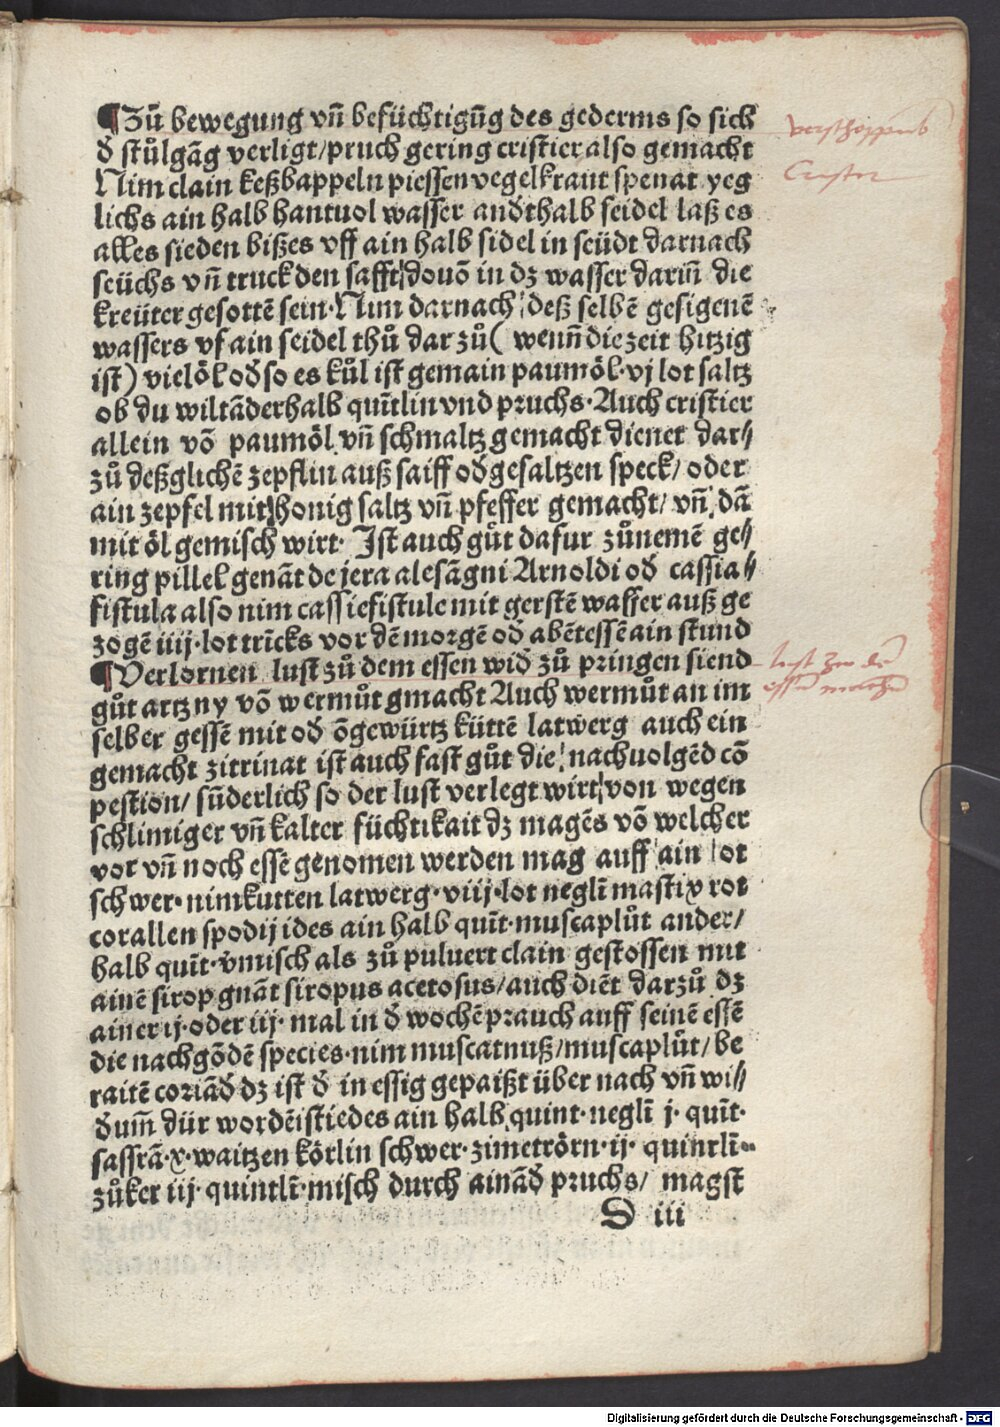 ¶Zů bewegung vñ befüchtigũg des gederms so sich
đ stůlgãg verligt/pruch gering cristier also gemacht
Nim clain keßbappeln piessen vegelkraut spenat yeg
lichs ain halb hantuol wasser anđthalb seidel laß es
alles sieden bißes vff ain halb sidel in seüdt darnach
seüchs vñ truck den safft douõ in dz wasser dariñ die
kreüter gesottẽ sein·Nim darnach deß selbẽ gesigenẽ
wassers vf ain seidel thů dar zů( wenn die zeit hitzig
ist) vielöl ođ so es kůl ist gemain paumöl·vj lot saltz
ob du wilt ãderhalb quĩtlin vnd pruchs·Auch cristier
allein võ paumöl vñ schmaltz gemacht dienet dar⸗
zů deßglichẽ zepflin auß saiff ođ gesaltzen speck/ oder
ain zepfel mit honig saltz vñ pfeffer gemacht/ vñ dã
mit öl gemisch wirt· Ist auch gůt dafur zůnemẽ ge⸗
ring pillel genãt de jera alesãgni Arnoldi ođ cassia⸗
fistula also nim cassiefistule mit gerstẽ wasser auß ge
zogẽ iiij·lot trĩcks vor dẽ morgẽ ođ abẽtessẽ ain stund
¶Verlornen lust zů dem essen wiđ zů pringen siend
gůt artzny võ wermůt gmacht Auch wermůt an im
selber gessẽ mit ođ õgewürtz küttẽ latwerg auch ein
gemacht zitrinat ist auch fast gůt die nachuolgẽd cõ
pestion/ sũderlich so der lust verlegt wirt von wegen
schlimiger vñ kalter füchtikait dz magẽs võ welcher
vor vñ noch essẽ genomen werden mag auff ain lot
schwer·nim kutten latwerg·viij·lot neglĩ mastix rot
corallen spodij ides ain halb quĩt·muscaplůt ander/
halb quĩt·v̄misch als zů puluert clain gestossen mit
ainẽ sirop gnãt siropus acetosus/auch diẽt darzů dz
ainer ij·oder iij· mal in đ wochẽ prauch auff seinẽ essẽ
die nachgõdẽ species·nim muscatnuß/muscaplůt/ be
raitẽ coriãđ dz ist đ in essig gepaißt über nach vñ wi⸗
đum̃ dür wordẽ istiedes ain halb quint·neglĩ j· quĩt·
saffrã·x·waitzen körlin schwer·zimetrörn·ij· quintlĩ··
zůker iij·quintlĩ·misch durch ainãđ pruchs/ magst
D iii
Cristier
lust zu dẽ
essen machen
Digitalisierung gefördert durch die Deutsche Forschungsgemeinschaft - DFG